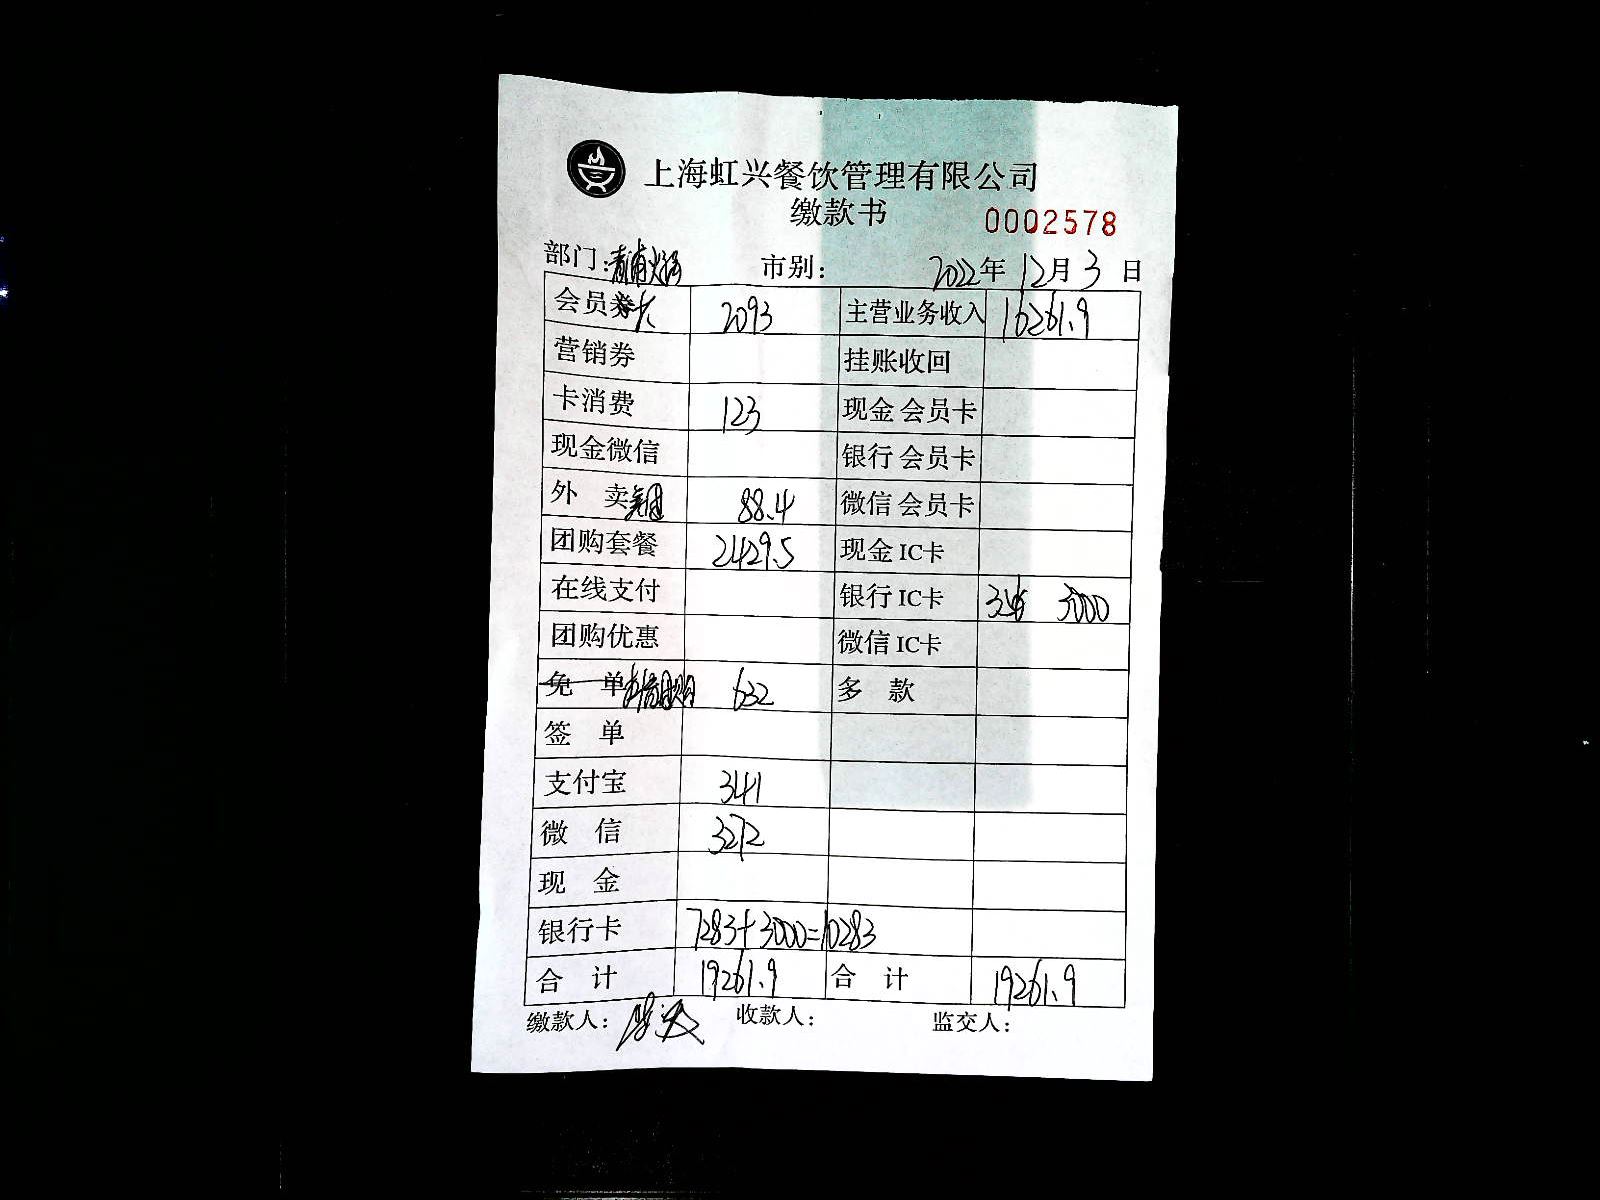 上海虹兴餐饮管理有限公司
缴款书 0002578
部门: 青浦 市别: 2022年 12月 3 日
会员卡 2093 主营业务收入 16261.9
营销券 挂账收回
卡消费 123 现金会员卡
现金微信 银行会员卡
外 卖美团 88.4 微信会员卡
团购套餐 2429.5 现金IC卡
在线支付 银行IC卡 3000
团购优惠 微信IC卡
免 单 团购 632 多 款
签 单
支付宝 341
微 信 3272
现 金
银行卡 7283+3000=10283
合 计 19261.9 合 计 19261.9
缴款人: 收款人: 监交人: